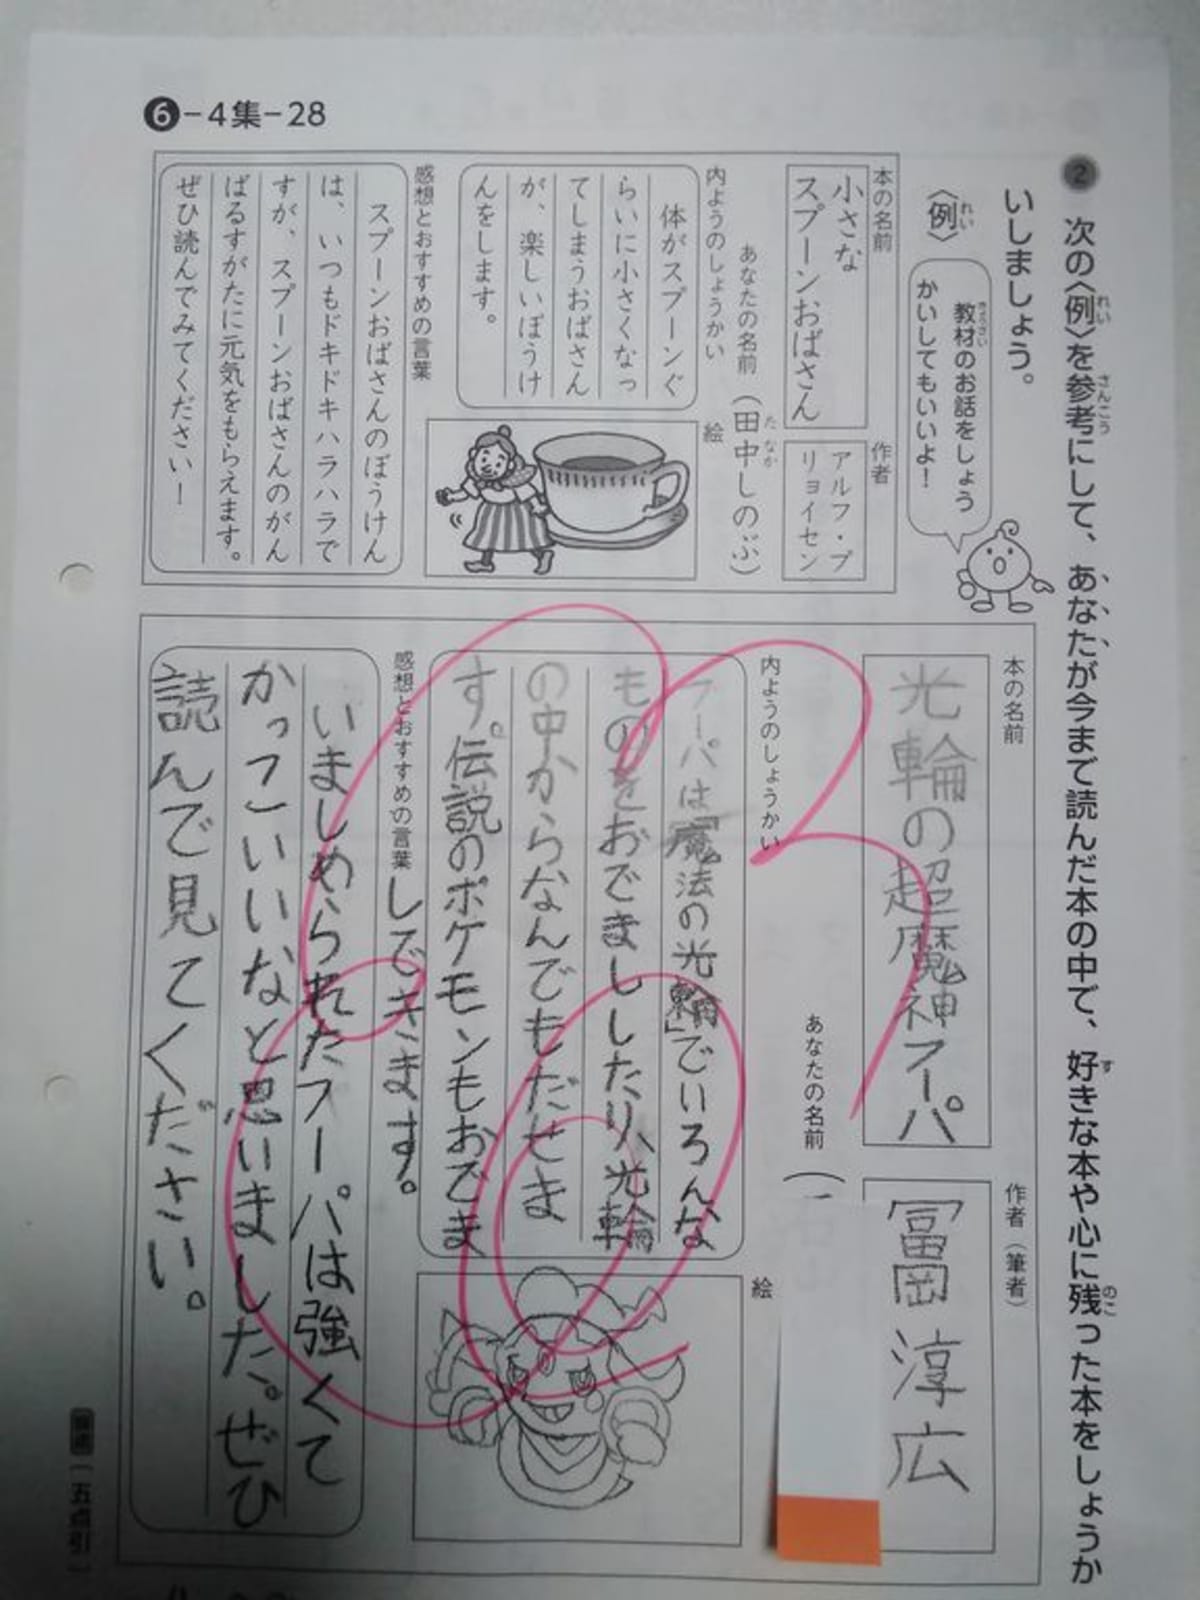 ❻-4集-28
2 次の〈例〉を参考にして、あなたが今まで読んだ本の中で、好きな本や心に残った本をしょうか
いしましょう。
〈例〉
教材のお話をしょう
かいしてもいいよ!
本の名前
小さな
スプーンおばさん
作者
アルフ・プ
リョイセン
あなたの名前(田中しのぶ)
内ようのしょうかい
体がスプーンぐ
らいに小さくなっ
てしまうおばさん
が、楽しいぼうけ
んをします。
絵
感想とおすすめの言葉
スプーンおばさんのぼうけん
は、いつもドキドキハラハラで
すが、スプーンおばさんのがん
ばるすがたに元気をもらえます。
ぜひ読んでみてください!
本の名前
光輪の超魔神フーパ
作者(筆者)
冨岡淳広
あなたの名前(
内ようのしょうかい
フーパは「魔法の光輪」でいろんな
ものをおでましした り、光輪
の中からなんでもだせま
す。伝説のポケモンもおでま
しできます。
絵
感想とおすすめの言葉
いましめられたフーパは強くて
かっこいいなと思いました。ぜひ
読んで見てください。
一五点引